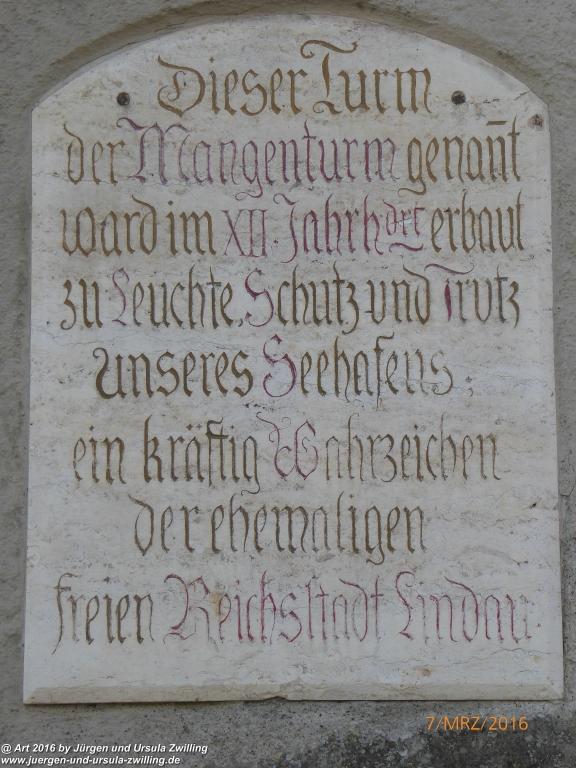 Dieser Turm
der Mangenturm genan̄t
ward im XII. Jahrhdrt erbaut
zu Leuchte, Schutz und Trutz
unseres Seehafens:
ein kräftig Wahrzeichen
der ehemaligen
freien Reichsstadt Lindau.
7/MRZ/2016
@ Art 2016 by Jürgen und Ursula Zwilling
www.juergen-und-ursula-zwilling.de